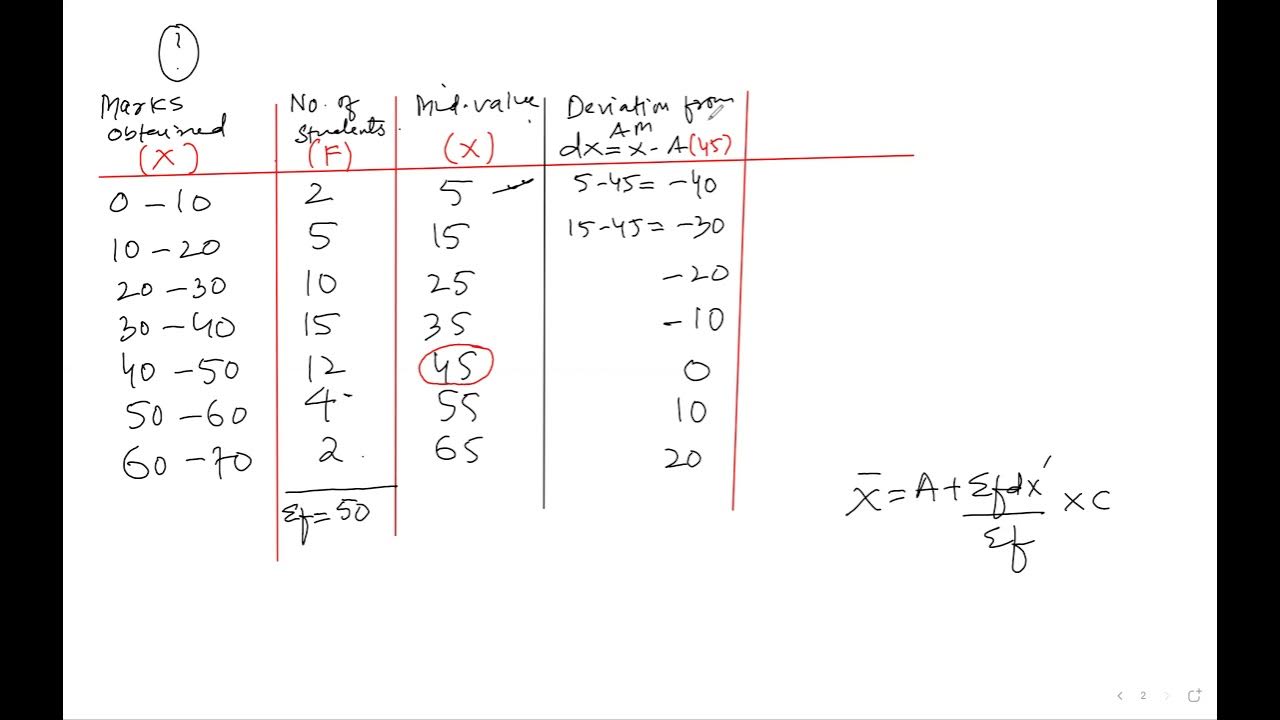 ?
Marks obtained (X) No. of Students (F) Mid. value (X) Deviation from AM dx = x - A(45)
0 - 10 2 5 5 - 45 = - 40
10 - 20 5 15 15 - 45 = - 30
20 - 30 10 25 - 20
30 - 40 15 35 - 10
40 - 50 12 45 0
50 - 60 4 55 10
60 - 70 2 65 20
Σf = 50
x̄ = A + Σfdx′ / Σf × C
2